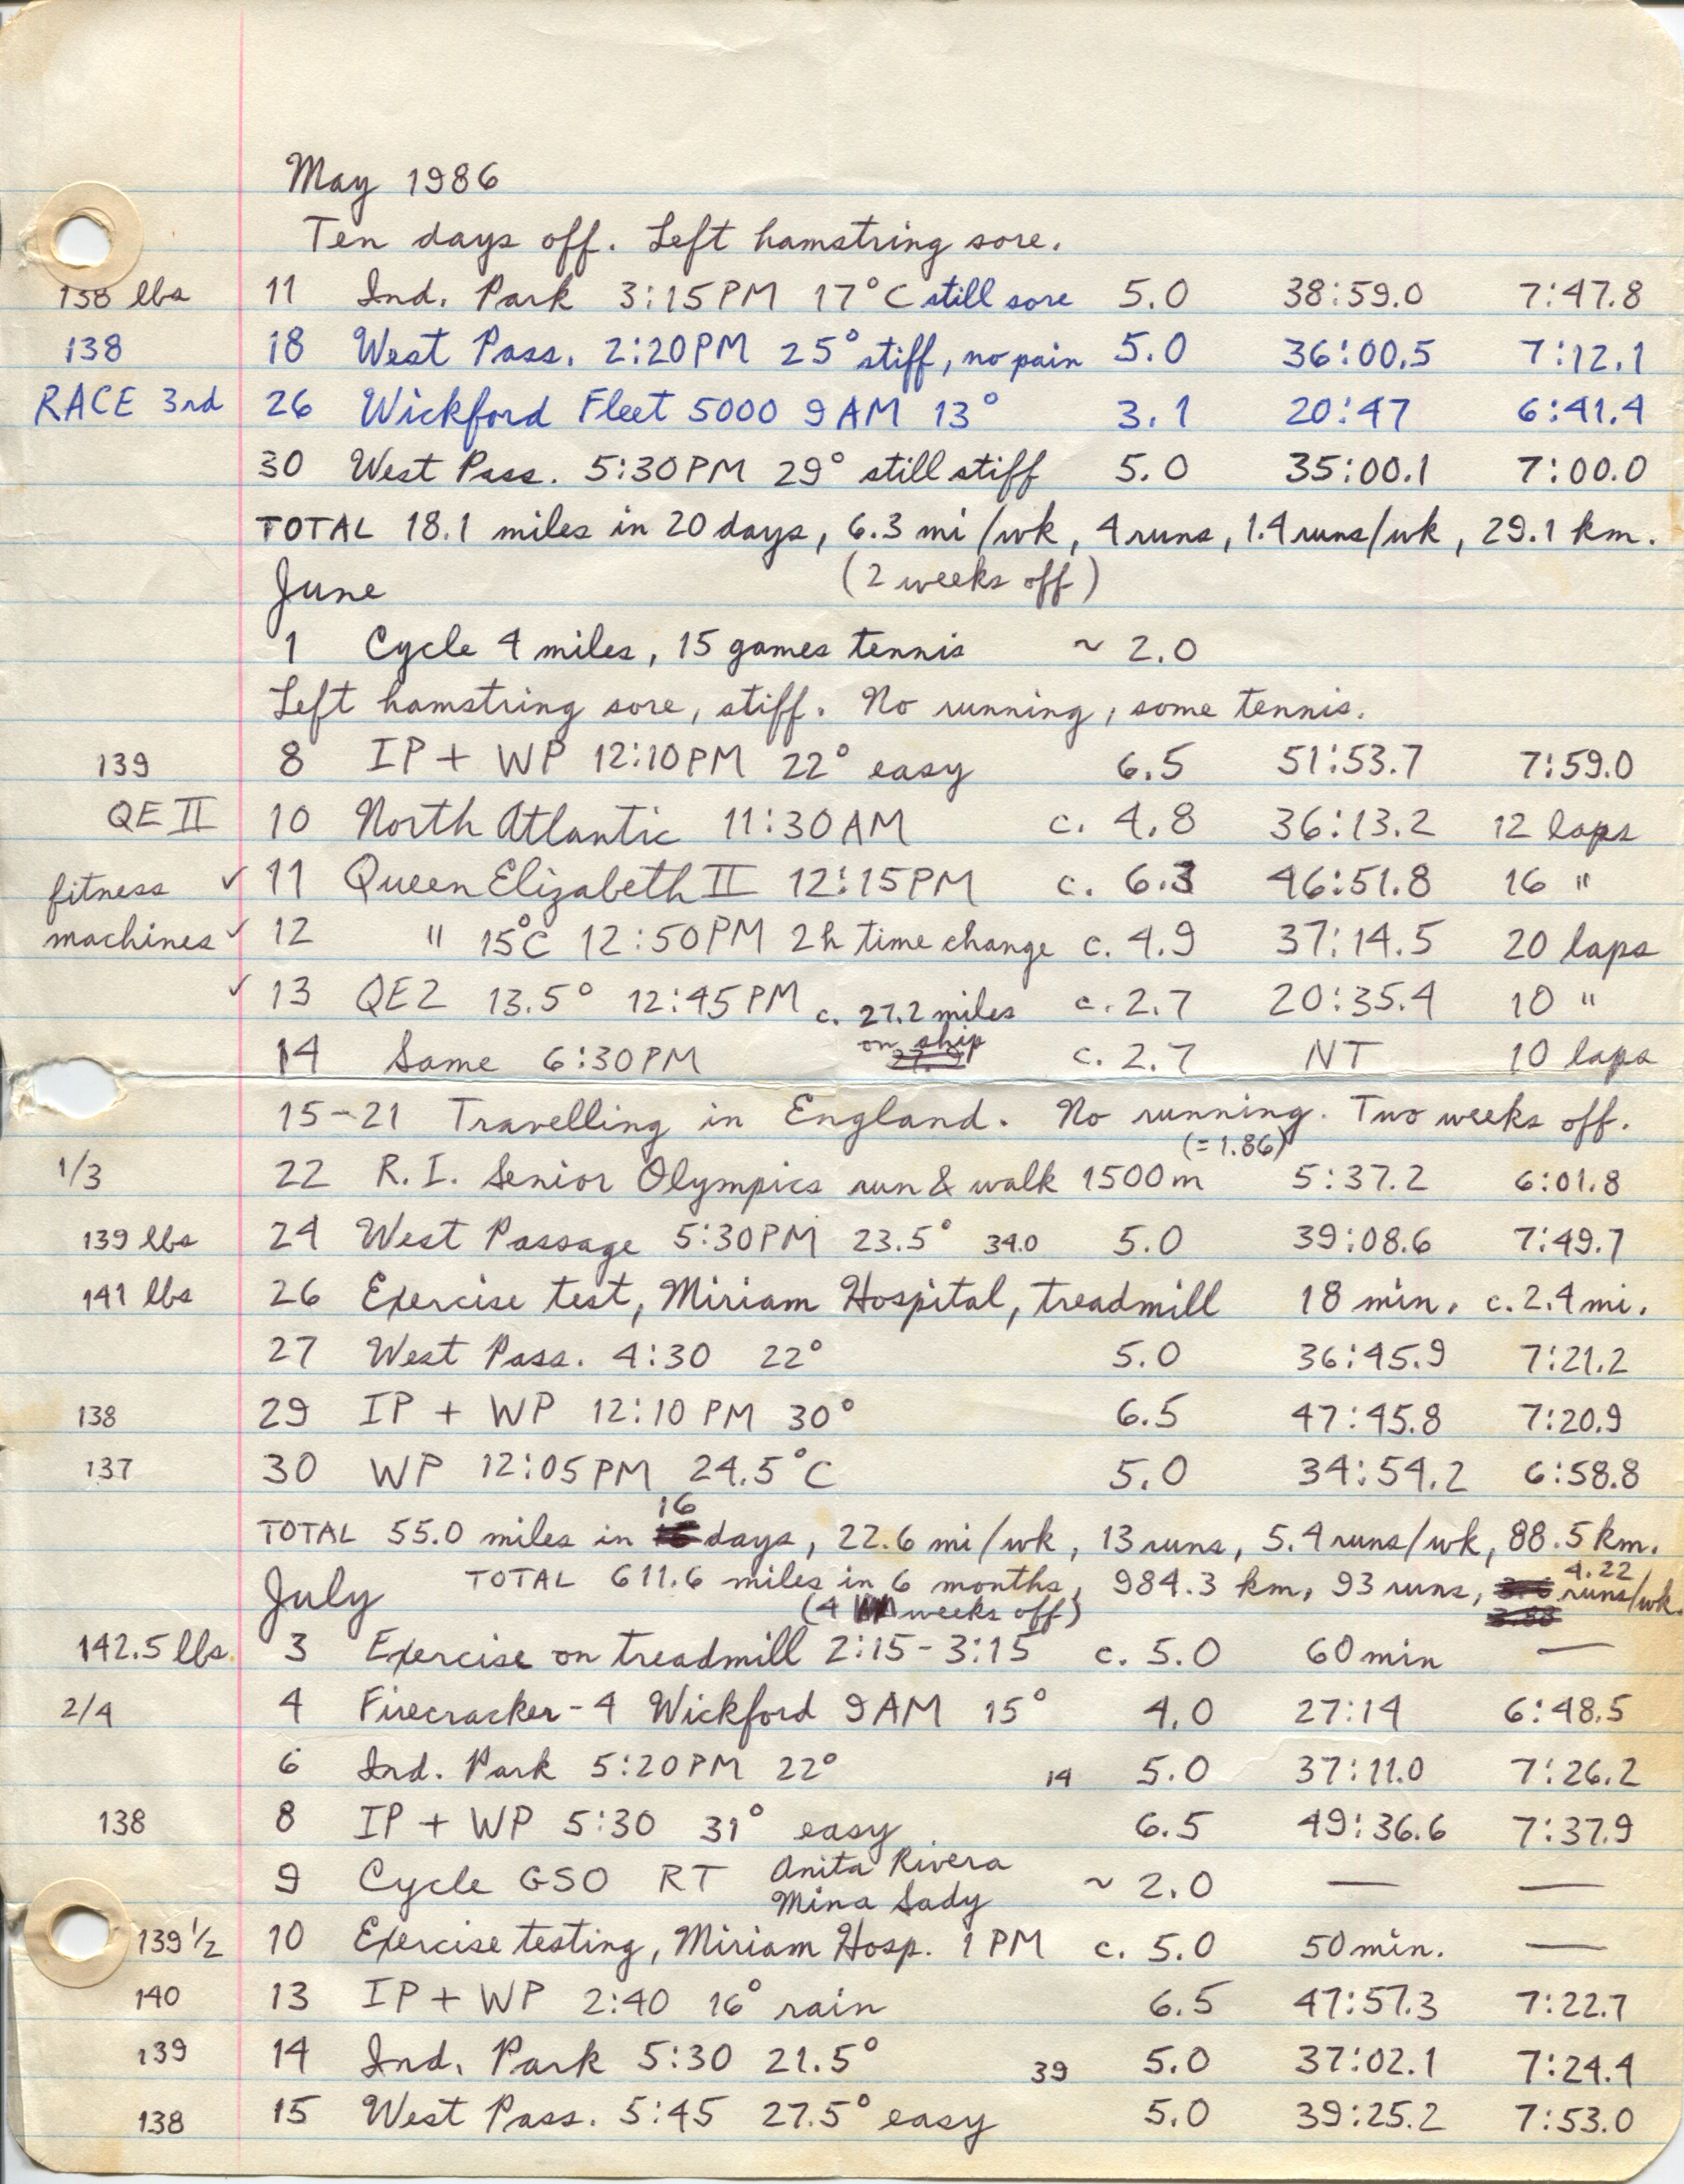 May 1986
Ten days off. Left hamstring sore.
138 lbs 11 Ind. Park 3:15PM 17°C still sore 5.0 38:59.0 7:47.8
138 18 West Pass. 2:20PM 25° stiff, no pain 5.0 36:00.5 7:12.1
RACE 3rd 26 Wickford Fleet 5000 9AM 13° 3.1 20:47 6:41.4
30 West Pass. 5:30PM 29° still stiff 5.0 35:00.1 7:00.0
TOTAL 18.1 miles in 20 days, 6.3 mi/wk, 4 runs, 1.4 runs/wk, 29.1 km.
June (2 weeks off)
1 Cycle 4 miles, 15 games tennis ~ 2.0
Left hamstring sore, stiff. No running, some tennis.
139 8 IP + WP 12:10PM 22° easy 6.5 51:53.7 7:59.0
QE II 10 North Atlantic 11:30AM c. 4.8 36:13.2 12 laps
fitness ✓ 11 Queen Elizabeth II 12:15PM c. 6.3 46:51.8 16 "
machines ✓ 12 " 15°C 12:50PM 2h time change c. 4.9 37:14.5 20 laps
✓ 13 QE2 13.5° 12:45PM c. 27.2 miles c. 2.7 20:35.4 10 "
on ship
14 Same 6:30PM c. 2.7 NT 10 laps
15-21 Travelling in England. No running. Two weeks off.
(=1.86)
1/3 22 R.I. Senior Olympics run & walk 1500m 5:37.2 6:01.8
139 lbs 24 West Passage 5:30PM 23.5° 34.0 5.0 39:08.6 7:49.7
141 lbs 26 Exercise test, Miriam Hospital, treadmill 18 min. c. 2.4 mi.
27 West Pass. 4:30 22° 5.0 36:45.9 7:21.2
138 29 IP + WP 12:10 PM 30° 6.5 47:45.8 7:20.9
137 30 WP 12:05PM 24.5°C 5.0 34:54.2 6:58.8
TOTAL 55.0 miles in 16 days, 22.6 mi/wk, 13 runs, 5.4 runs/wk, 88.5 km.
July TOTAL 611.6 miles in 6 months, 984.3 km, 93 runs, 4.22 runs/wk.
(4 weeks off)
142.5 lbs. 3 Exercise on treadmill 2:15-3:15 c. 5.0 60 min —
2/4 4 Firecracker-4 Wickford 9AM 15° 4.0 27:14 6:48.5
6 Ind. Park 5:20PM 22° 14 5.0 37:11.0 7:26.2
138 8 IP + WP 5:30 31° easy 6.5 49:36.6 7:37.9
9 Cycle GSO RT Anita Rivera ~ 2.0 — —
Mina Sady
139 1/2 10 Exercise testing, Miriam Hosp. 1 PM c. 5.0 50 min. —
140 13 IP + WP 2:40 16° rain 6.5 47:57.3 7:22.7
139 14 Ind. Park 5:30 21.5° 39 5.0 37:02.1 7:24.4
138 15 West Pass. 5:45 27.5° easy 5.0 39:25.2 7:53.0